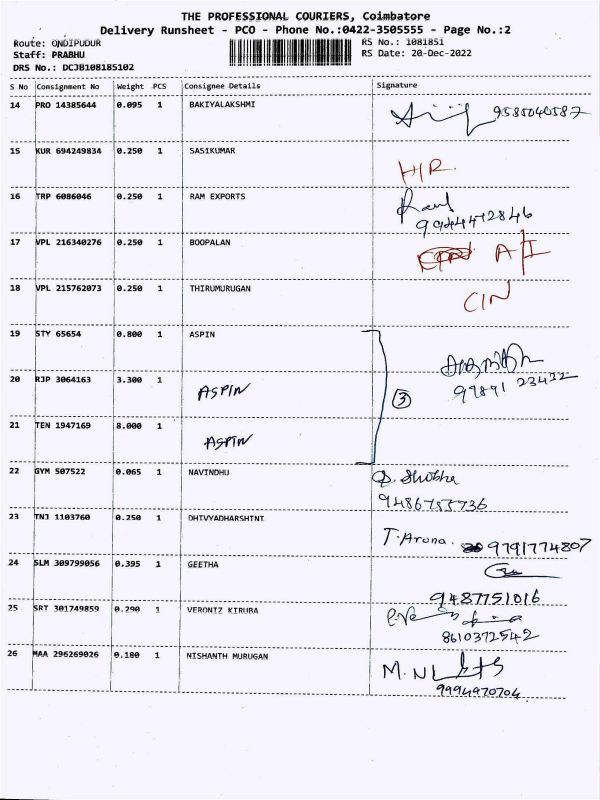 THE PROFESSIONAL COURIERS, Coimbatore
Delivery Runsheet - PCO - Phone No.:0422-3505555 - Page No.:2
Route: ONDIPUDUR RS No.: 1081851
Staff: PRABHU RS Date: 20-Dec-2022
DRS No.: DCJB108185102
S No Consignment No Weight PCS Consignee Details Signature
14 PRO 14385644 0.095 1 BAKIYALAKSHMI 9585040587
15 KUR 694249834 0.250 1 SASIKUMAR H/R
16 TRP 6086046 0.250 1 RAM EXPORTS
9944472846
17 VPL 216340276 0.250 1 BOOPALAN A/I
18 VPL 215762073 0.250 1 THIRUMURUGAN C/N
19 STY 65654 0.800 1 ASPIN
20 RJP 3064163 3.300 1 ASPIN 3 97891 23432
21 TEN 1947169 8.000 1 ASPIN
22 GYM 507522 0.065 1 NAVINDHU Shobha
9486755736
23 TNJ 1103760 0.250 1 DHIVYADHARSHINI T. Aruna. 9791774807
24 SLM 309799056 0.395 1 GEETHA
9487751016
25 SRT 301749859 0.290 1 VERONIZ KIRUBA
8610372542
26 MAA 296269026 0.180 1 NISHANTH MURUGAN
9994970704